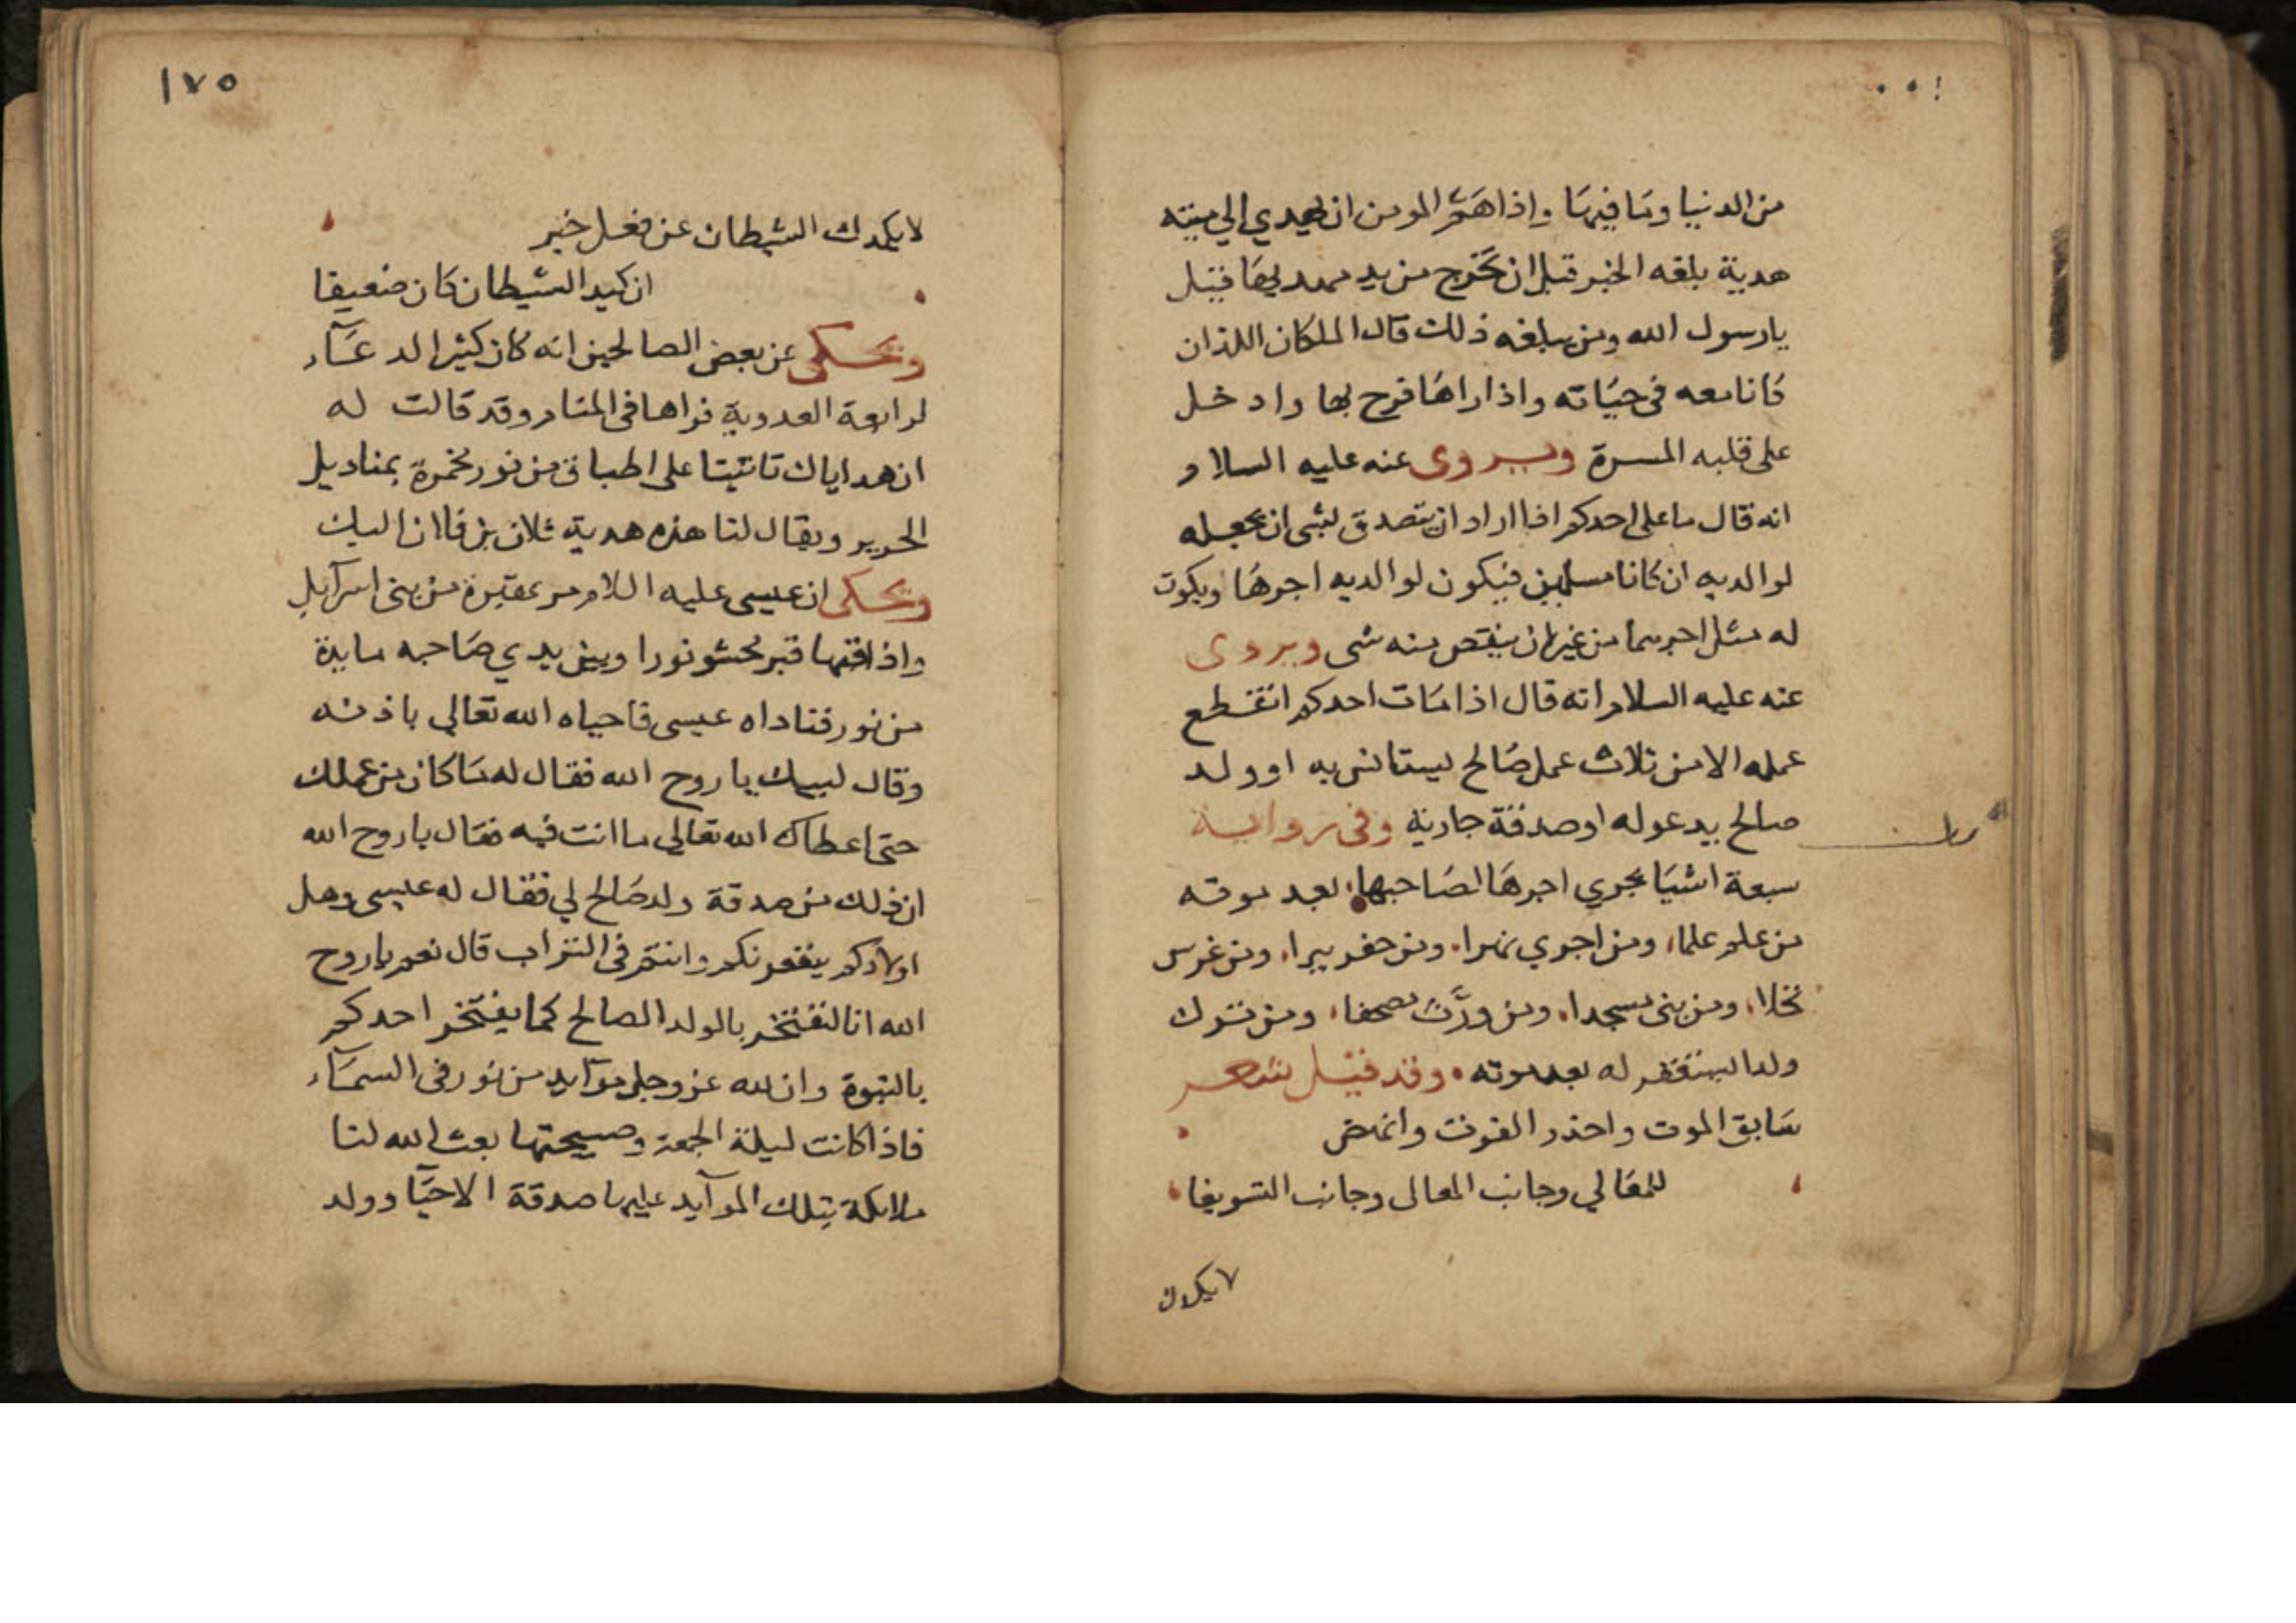 من الدنيا وما فيها وإذا همّ المومن ان يهدي الي ميته
هدية بلغه الخبر قبل ان تخرج من يد مهديها قيل
يا رسول الله ومن يبلغه ذلك قال الملكان اللذان
كانا معه في حياته واذا راها فرح بها وادخل
على قلبه المسرة ويروى عنه عليه السلام
انه قال ما على احدكم اذا اراد ان يتصدق لشى ان يجعله
لوالديه ان كانا مسلمين فيكون لوالديه اجرها ويكون
له مثل اجرهما من غير ان ينقص منه شى ويروى
عنه عليه السلام انه قال اذا مات احدكم انقطع
عمله الا من ثلاث عمل صالح ليستانس به او ولد
صالح يدعو له او صدقة جارية وفى رواية
سبعة اشيا يجري اجرها لصاحبها بعد موته
من علم علما، ومن اجري نهرا. ومن حفر بيرا، ومن غرس
نخلا، ومن بنى مسجدا. ومن ورّث مصحفا، ومن ترك
ولدا ليستغفر له بعد موته. وقد قيل شعر
سابق الموت واحذر الفوت وانهض
للمعالي وجانب المعالى وجانب التسويفا
لا يكدك
١٧٥
لا يكدك الشيطان عن فعل خير
ان كيد الشيطان كان ضعيفا
ويحكى عن بعض الصالحين انه كان كثير الدعآء
لرابعة العدوية فراها فى المنام وقد قالت له
ان هداياك تاتيتا على اطباق من نور مخمرة بمناديل
الحرير ويقال لنا هذه هدية فلان بن فلان اليك
ويحكى ان عيسى عليه اللام مر بمقبرة من بنى اسرآيل
وإذا فيها قبر محشو نورا وبين يدي صاحبه مايدة
من نور فناداه عيسى فاحياه الله تعالى باذنه
وقال لبيك يا روح الله فقال له ما كان من عملك
حتى اعطاك الله تعالى ما انت فيه فقال يا روح الله
ان ذلك من صدقة ولد صالح لي فقال له عيسى وهل
اولادكم ينفعونكم وانتم فى التراب قال نعم يا روح
الله انا لنفتخر بالولد الصالح كما يفتخر احدكم
بالنبوة وان لله عز وجل موآيد من نور فى السمآء
فاذا كانت ليلة الجمعة وصبيحتها بعث الله لنا
ملايكة بتلك الموآيد عليها صدقة الاحيا وولد